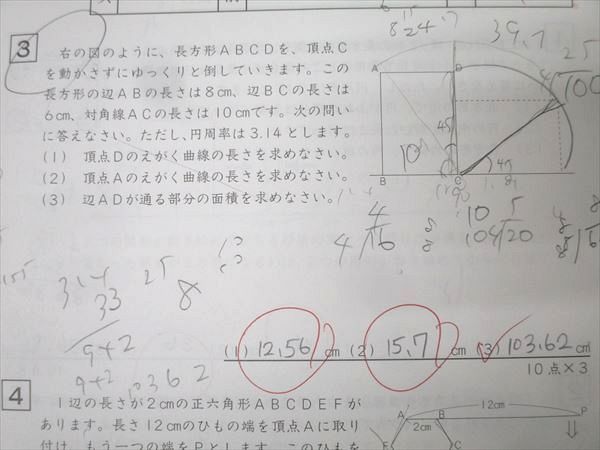 824.7
39.7
3
右の図のように、長方形ABCDを、頂点C
を動かさずにゆっくりと倒していきます。この
長方形の辺ABの長さは8cm、辺BCの長さは
6cm、対角線ACの長さは10cmです。次の問い
に答えなさい。ただし、円周率は3.14とします。
(1) 頂点Dのえがく曲線の長さを求めなさい。
(2) 頂点Aのえがく曲線の長さを求めなさい。
(3) 辺ADが通る部分の面積を求めなさい。
A D
25
100
45
10
45
B C
4
4/16
8
8
10 5
104/20
314
33
25
8
942
942
10362
(1) 12.56 cm (2) 15.7 cm (3) 103.62 cm
10点×3
4
1辺の長さが2cmの正六角形ABCDEFが
あります。長さ12cmのひもの端を頂点Aに取り
付け、もう一つの端をPとします。このひもを
12cm
A B P
2cm
F C